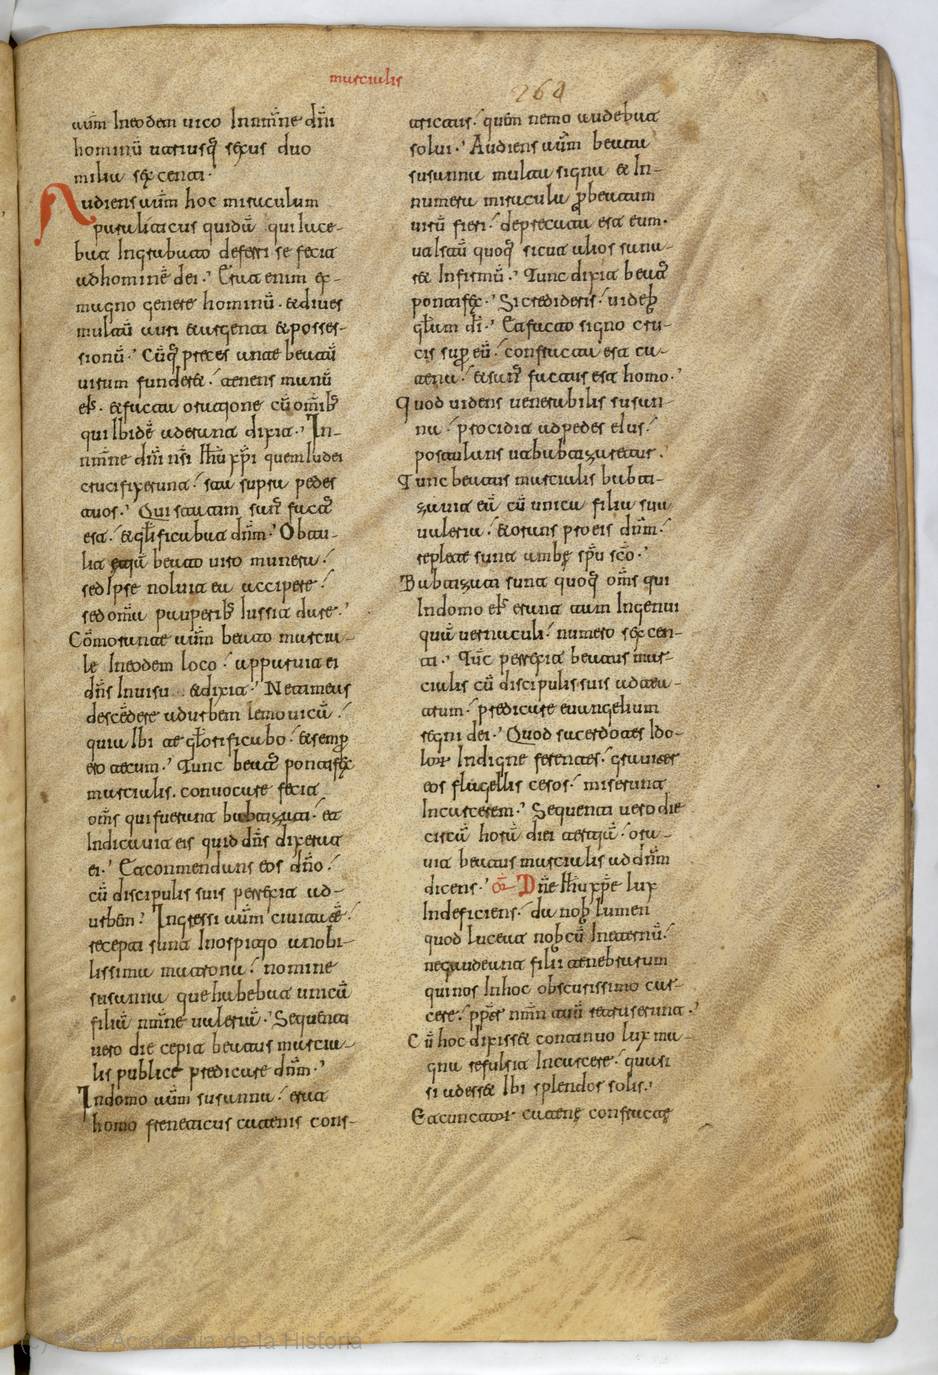 marcialis
264
aūm Ineodem uico Innm̄ne dn̄i
hominū utriusq̄ sexus duo
milia sexcenti.
Audiens aūm hoc miraculum
paraliticus quidā qui iace-
bat Ingrabato deferri se fecit
adhominē dei. Erat enim ex-
magno genere hominū. &diues
multū auri &argenti &posses-
sionū. Cūq̄ preces ante beatū
uirum funder&. tenens manū
eīs. &facta oratione cū om̄ib;
qui Ibidē aderant dixit. In-
nm̄ne dn̄i nsī ihū xpī quem Iudei
crucifixerunt. sta supra pedes
tuos. Qui statim san̄ fact̄
est. &gl̄ificabat dn̄m. Obtu-
lit beato uiro munera.
sed Ipse noluit ea accipere.
sed om̄a pauperib; Iussit dare.
Cōmorante aūm beato marcia-
le Ineodem loco. apparuit ei
dn̄s Inuisu &dixit. Ne timeas
descēdere adurbem lemouicū.
quia Ibi te gl̄orificabo. &semp̱
ero tecum. Tunc beat̄ pontifex
marcialis. conuocare fecit
om̄s qui fuerunt babtizati. et
Indicauit eis quid dn̄s dixerat
ei. Etconmendans eos dn̄o.
cū discipulis suis perrexit ad-
urbēm. Ingressi aūm ciuitatē.
recepti sunt Inospitio a nobi-
lissima matrona. nomine
susanna que habebat unicā
filiā nm̄ne ualeriā. Sequenti
uero die cepit beatus marcia-
lis publice predicare dn̄m.
Indomo aūm susanna. erat
homo freneticus catenis cons-
trictus. quēm nemo audebat
solui. Audiens aūm beata
susanna multa signa & In-
numera miracula p̱ beatum
uirū fieri. deprecata est eum.
ut istū quoq̄ sicut alios sana-
r& Infirmū. Tunc dixit beat̄
pontifex. Si credideris. uideb̄
gl̄am dī. Et facto signo cru-
cis sup̱ eū. confracta est ca-
tena. &san̄ factus est homo.
Quod uidens uenerabilis susan-
na. procidit adpedes eīus.
postulans utbabtizaretur.
Tunc beatus marcialis babti-
zauit eā cū unica filia sua
ualeria. &orans pro eis dn̄m.
replete sunt ambę spū scō.
Babtizati sunt quoq̄ om̄s qui
Indomo eīs erant tam Ingenui
quā uernaculi. numero sexcen-
ti. Tūc perrexit beatus mar-
cialis cū discipulis suis adtea-
trum. predicare euangelium
regni dei. Quod sacerdotes Ido-
lor Indigne ferentes. grauiter
eos flagellis cesos. miserunt
Incarcerem. Sequenti uero die
circā horā diei tertiā. ora-
uit beatus marcialis ad dn̄m
dicens. or̄ Dn̄e ihū xpē lux
Indeficiens. da nob; lumen
quod luceat nob; cū Ineternū.
negaudeant filii tenebrarum
qui nos Inhoc obscurissimo car-
cere. pp̄ter nm̄n tuū retruserunt.
Cū hoc dixiss& continuo lux ma-
gna refulsit Incarcere. quasi
si adess& Ibi splendor solis.
Et cuncator catenę confractę